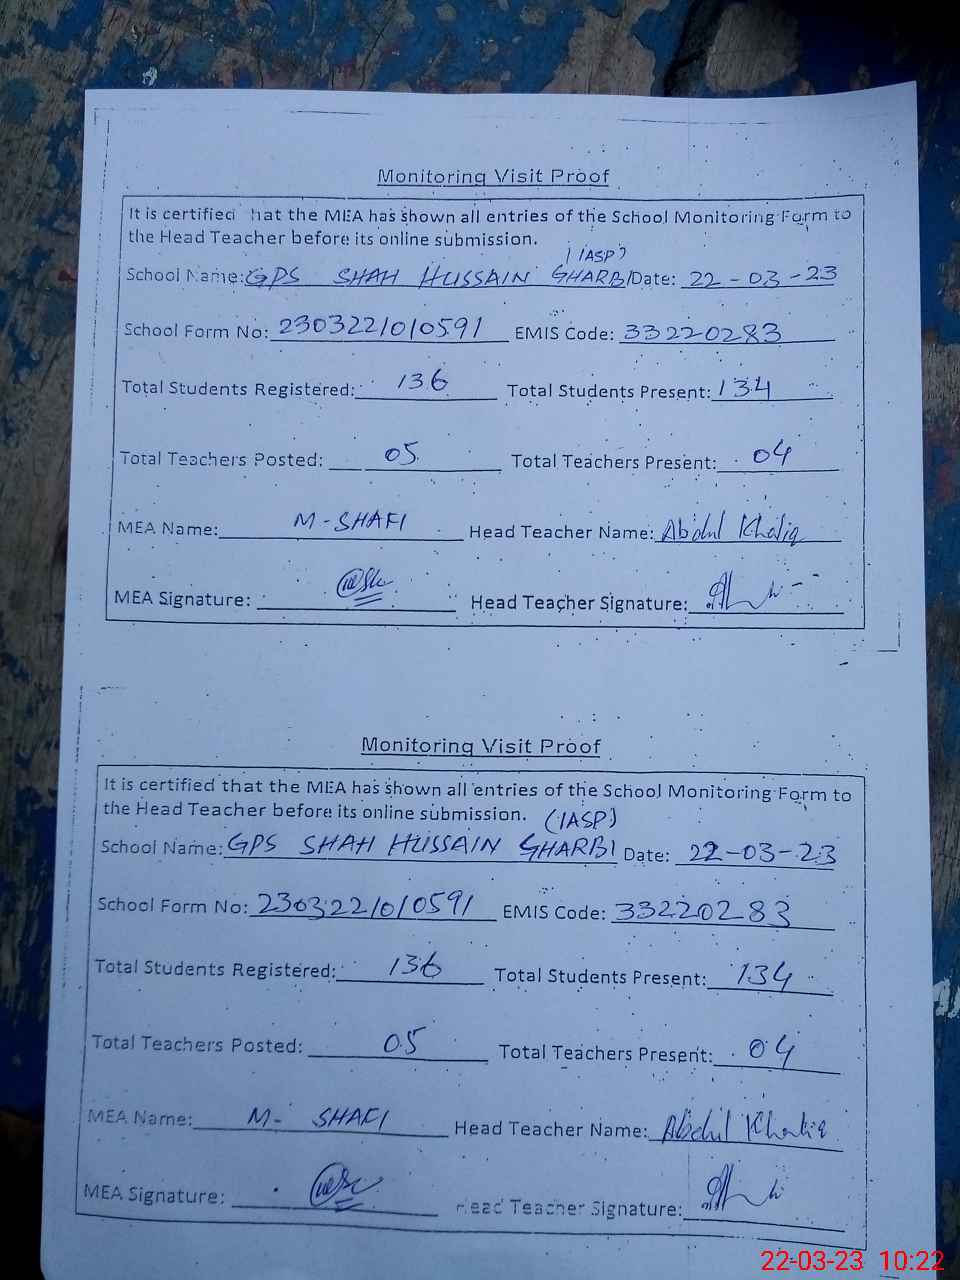 Monitoring Visit Proof
It is certified that the MEA has shown all entries of the School Monitoring Form to
the Head Teacher before its online submission.
(IASP)
School Name: GPS SHAH HUSSAIN GHARBI Date: 22-03-23
School Form No: 2303221010591 EMIS Code: 33220283
Total Students Registered: 136 Total Students Present: 134
Total Teachers Posted: 05 Total Teachers Present: 04
MEA Name: M-SHAFI Head Teacher Name: Abdul Khaliq
MEA Signature: Head Teacher Signature:
Monitoring Visit Proof
It is certified that the MEA has shown all entries of the School Monitoring Form to
the Head Teacher before its online submission. (IASP)
School Name: GPS SHAH HUSSAIN GHARBI Date: 22-03-23
School Form No: 2303221010591 EMIS Code: 33220283
Total Students Registered: 136 Total Students Present: 134
Total Teachers Posted: 05 Total Teachers Present: 04
MEA Name: M- SHAFI Head Teacher Name: Abdul Khaliq
MEA Signature: Head Teacher Signature:
22-03-23 10:22